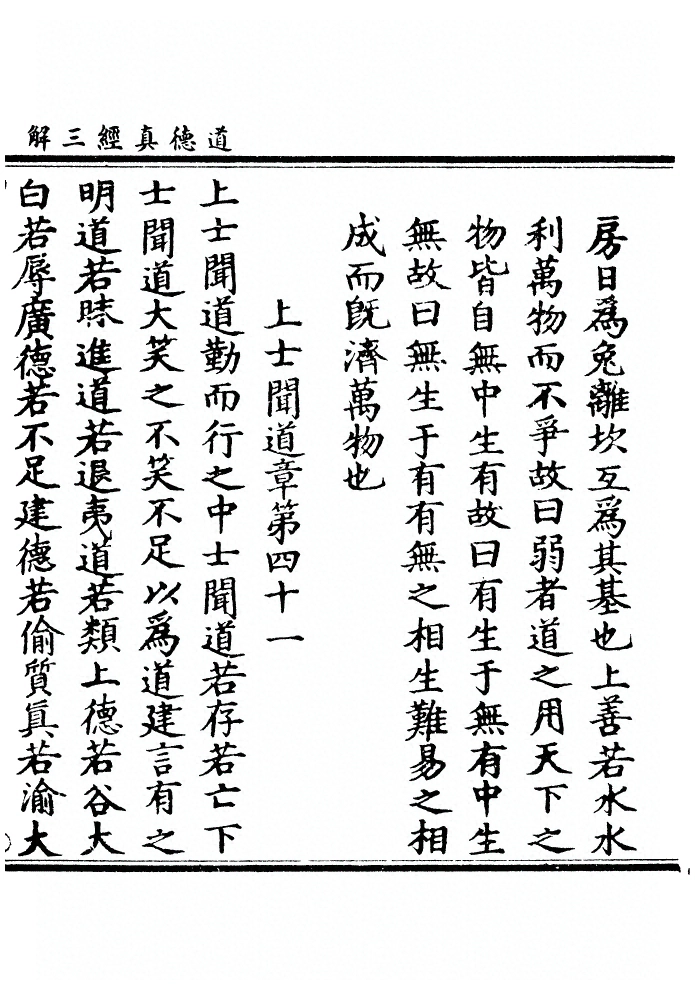 道德真經三解
房日為兔離坎互為其基也上善若水水
利萬物而不爭故曰弱者道之用天下之
物皆自無中生有故曰有生于無有中生
無故曰無生于有有無之相生難易之相
成而既濟萬物也
上士聞道章第四十一
上士聞道勤而行之中士聞道若存若亡下
士聞道大笑之不笑不足以為道建言有之
明道若昧進道若退夷道若類上德若谷大
白若辱廣德若不足建德若偷質真若渝大